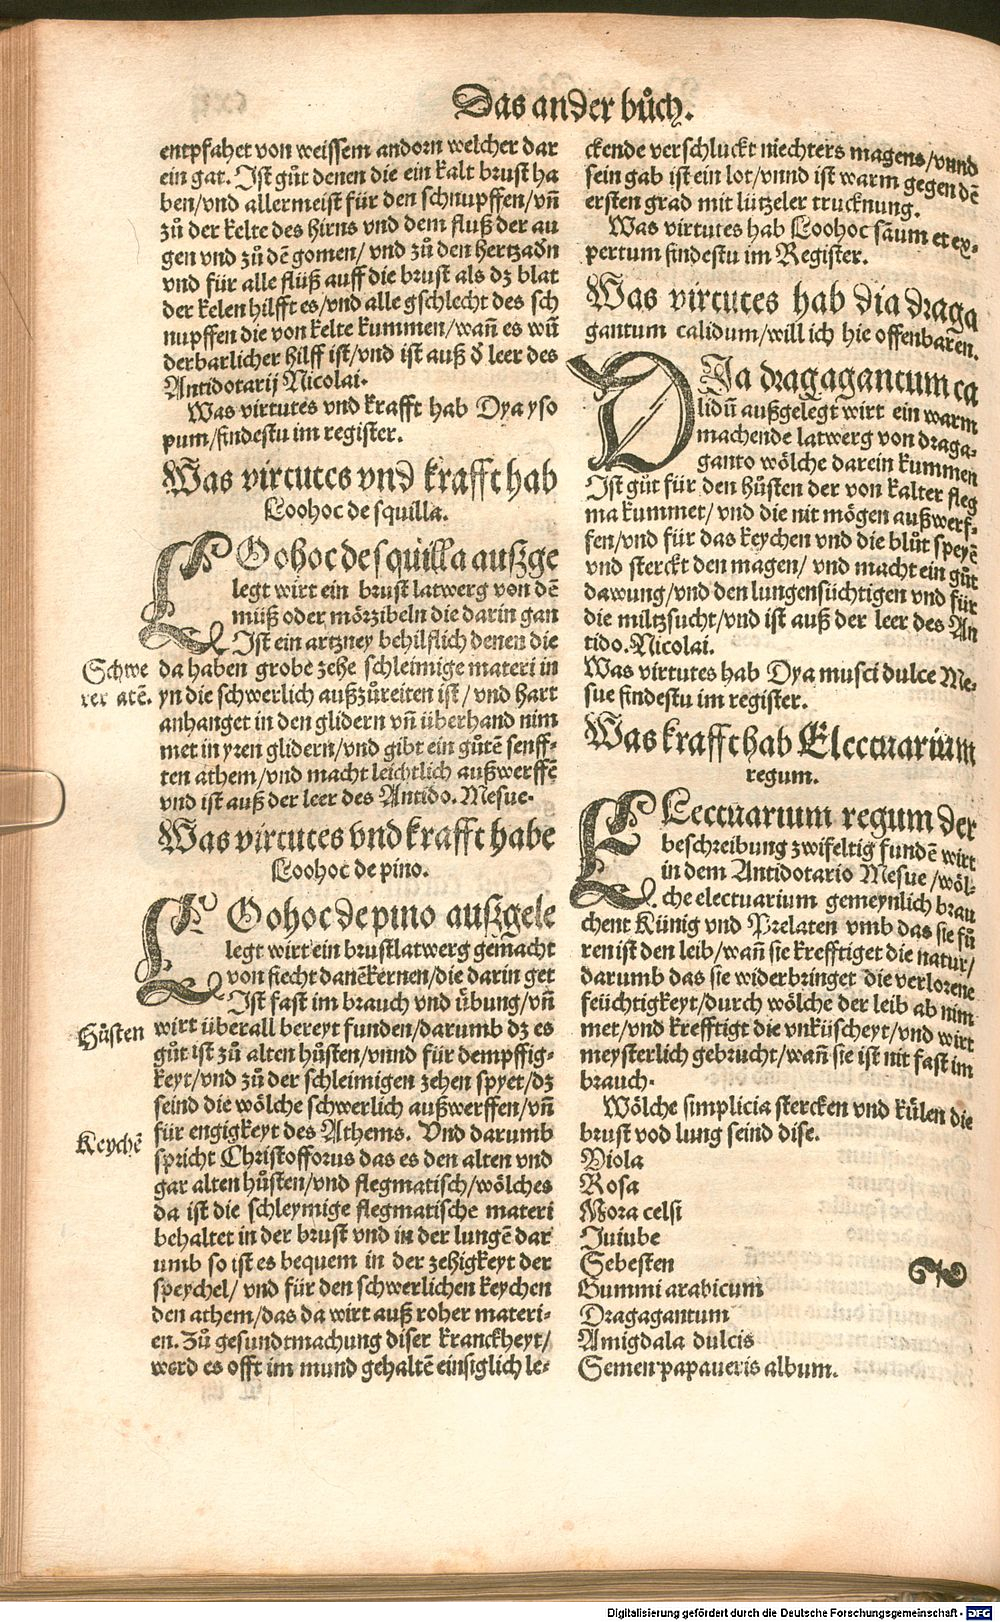 Das ander bůch.
entpfahet von weissem andorn welcher dar
ein gat. Ist gůt denen die ein kalt brust ha
ben/vnd allermeist für den schnupffen/vñ
zů der kelte des hirns vnd dem fluß der au
gen vnd zů dẽ gomen/ vnd zů den hertzadn
vnd für alle flüß auff die brust als dz blat
der kelen hilfft es/vnd alle gschlecht des sch
nupffen die von kelte kummen/wañ es wũ
derbarlicher hilff ist/vnd ist auß d̕ leer des
Antidotarij Nicolai.
Was virtutes vnd krafft hab Dya yso
pum/findestu im register.
Was virtutes vnd krafft hab
Loohoc de squilla.
LOohoc de squilla außge
legt wirt ein brust latwerg von dẽ
müß oder mörzibeln die darin gan
Ist ein artzney behilflich denen die
Schwe
rer atẽ.
da haben grobe zehe schleimige materi in
yn die schwerlich außzůreiten ist/ vnd hart
anhanget in den glidern vñ überhand nim
met in yren glidern/vnd gibt ein gůtẽ senff⸗
ten athem/vnd macht leichtlich außwerffẽ
vnd ist auß der leer des Antido. Mesue.
Was virtutes vnd krafft habe
Loohoc de pino.
LOohoc de pino außgele
legt wirt ein brustlatwerg gemacht
von fiecht danẽkernen/die darin get
Ist fast im brauch vnd übung/vñ
Hůsten
wirt überall bereyt funden/darumb dz es
gůt ist zů alten hůsten/vnnd für dempffig⸗
keyt/vnd zů der schleimigen zehen spyet/dz
seind die wölche schwerlich außwerffen/vñ
Keychẽ
für engigkeyt des Athems. Vnd darumb
spricht Christofforus das es den alten vnd
gar alten hůsten/vnd flegmatisch/wölches
da ist die schleymige flegmatische materi
behaltet in der brust vnd in der lungẽ dar
umb so ist es bequem in der zehigkeyt der
speychel/ vnd für den schwerlichen keychen
den athem/das da wirt auß roher materi⸗
en. Zů gesundtmachung diser kranckheyt/
werd es offt im mund gehaltẽ einsiglich le⸗
ckende verschluckt niechters magens/vnnd
sein gab ist ein lot/vnnd ist warm gegen dẽ
ersten grad mit lützeler trucknung.
Was virtutes hab Loohoc sanum et ex⸗
pertum findestu im Register.
Was virtutes hab dia draga
gantum calidum/will ich hie offenbaren.
DIa dragagantum ca
lidũ außgelegt wirt ein warm
machende latwerg von draga⸗
ganto wölche darein kummen
Ist gůt für den hůsten der von kalter fleg
ma kummet/ vnd die nit mögen außwerf⸗
fen/vnd für das keychen vnd die blůt speyẽ
vnd sterckt den magen/ vnd macht ein gůt
dawung/vnd den lungensüchtigen vnd für
die miltzsucht/vnd ist auß der leer des An
tido. Nicolai.
Was virtutes hab Dya musci dulce Me⸗
sue findestu im register.
Was krafft hab Electuarium
regum.
ELectuarium regum der
beschreibung zwifeltig fundẽ wirt
in dem Antidotario Mesue/wöl⸗
che electuarium gemeynlich brau
chent Künig vnd Prelaten vmb das sie fů
ren ist den leib/wañ sie krefftiget die natur/
darumb das sie widerbringet die verlorene
feüchtigkeyt/durch wölche der leib ab nim
met/vnd krefftigt die vnküscheyt/vnd wirt
meysterlich gebrucht/wañ sie ist nit fast im
brauch.
Wölche simplicia stercken vnd külen die
brust vod lung seind dise.
Viola
Rosa
Mora celsi
Juiube
Sebesten
Gummi arabicum
Dragagantum
Amigdala dulcis
Semen papaueris album.
Digitalisierung gefördert durch die Deutsche Forschungsgemeinschaft - DFG